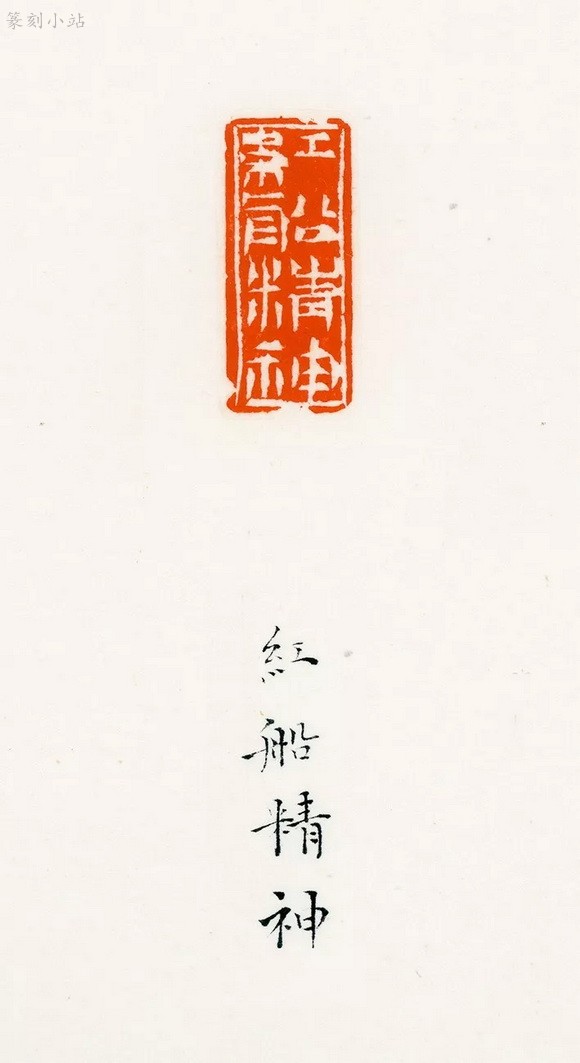 篆刻小站
紅船精神
紅船精神